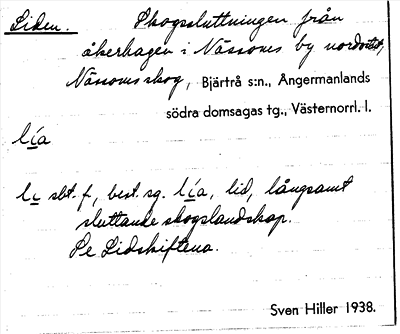 Liden. Skogssluttningen från
åkerhagen i Nässoms by nordost,
Nässoms skog, Bjärtrå s:n., Angermanlands
södra domsagas tg., Västernorrl. l.
lìa
lı sbt. f, best. sg. lìa, lid, långsamt
sluttande skogslandskap.
Se Lidskiftena.
Sven Hiller 1938.